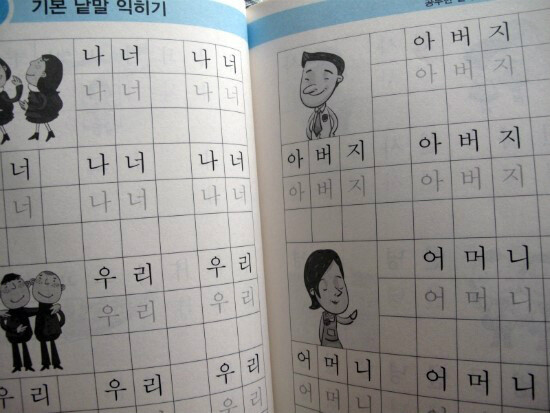 기본 낱말 익히기
나 너 나 너
나 너 나 너
너 나 너 나 너
너 나 너 나 너
우 리 우 리
우 리 우 리
우 리 우 리 우 리
아 버 지
아 버 지
아 버 지 아 버 지
아 버 지 아 버 지
어 머 니
어 머 니
어 머 니 어 머 니
어 머 니 어 머 니